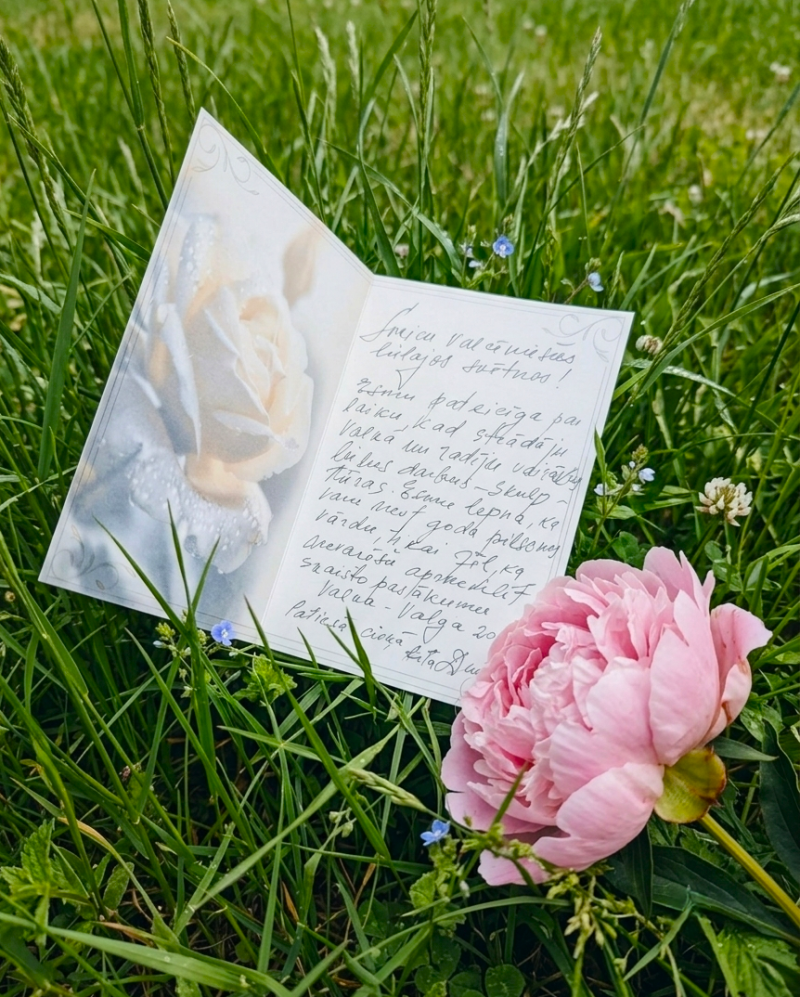 Sveicu valcēniešus
lielajos svētkos!
Esmu pateicīga par
laiku, kad strādāju
Valkā un radīju vairākus
lielus darbus - skulp-
tūras. Esmu lepna, ka
varu nest goda pilsones
vārdu, tikai žēl, ka
nevarēšu apmeklēt
skaisto pasākumu
Valka - Valga 20
Patiesā cieņā